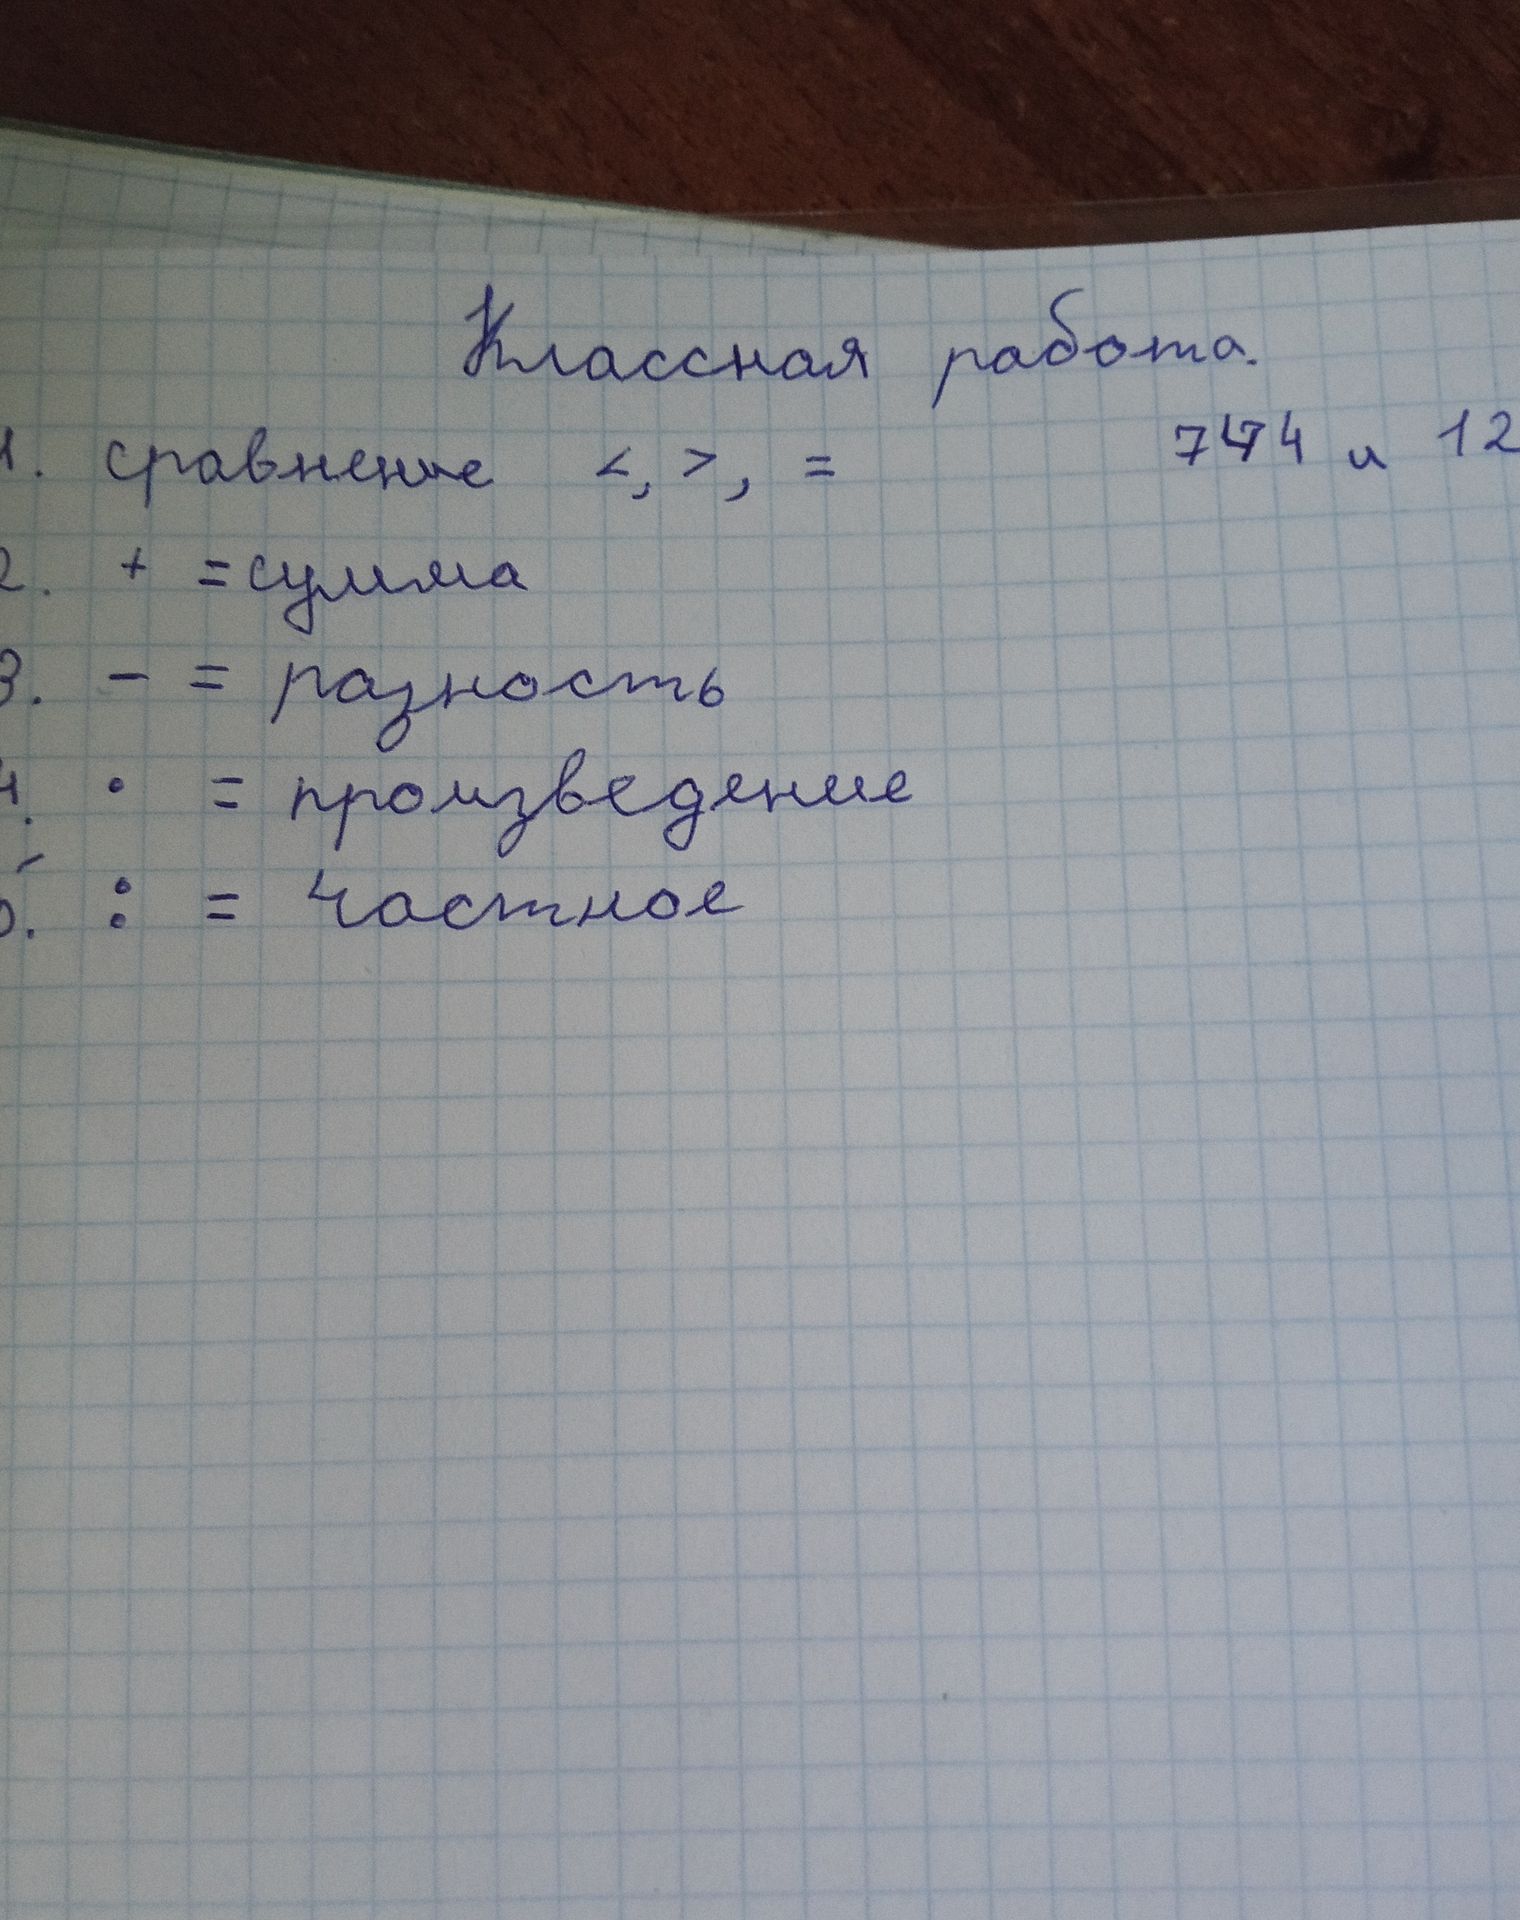 Классная работа.
1. сравнение <, >, = 744 и 12
2. + = сумма
3. - = разность
4. · = произведение
5. : = частное